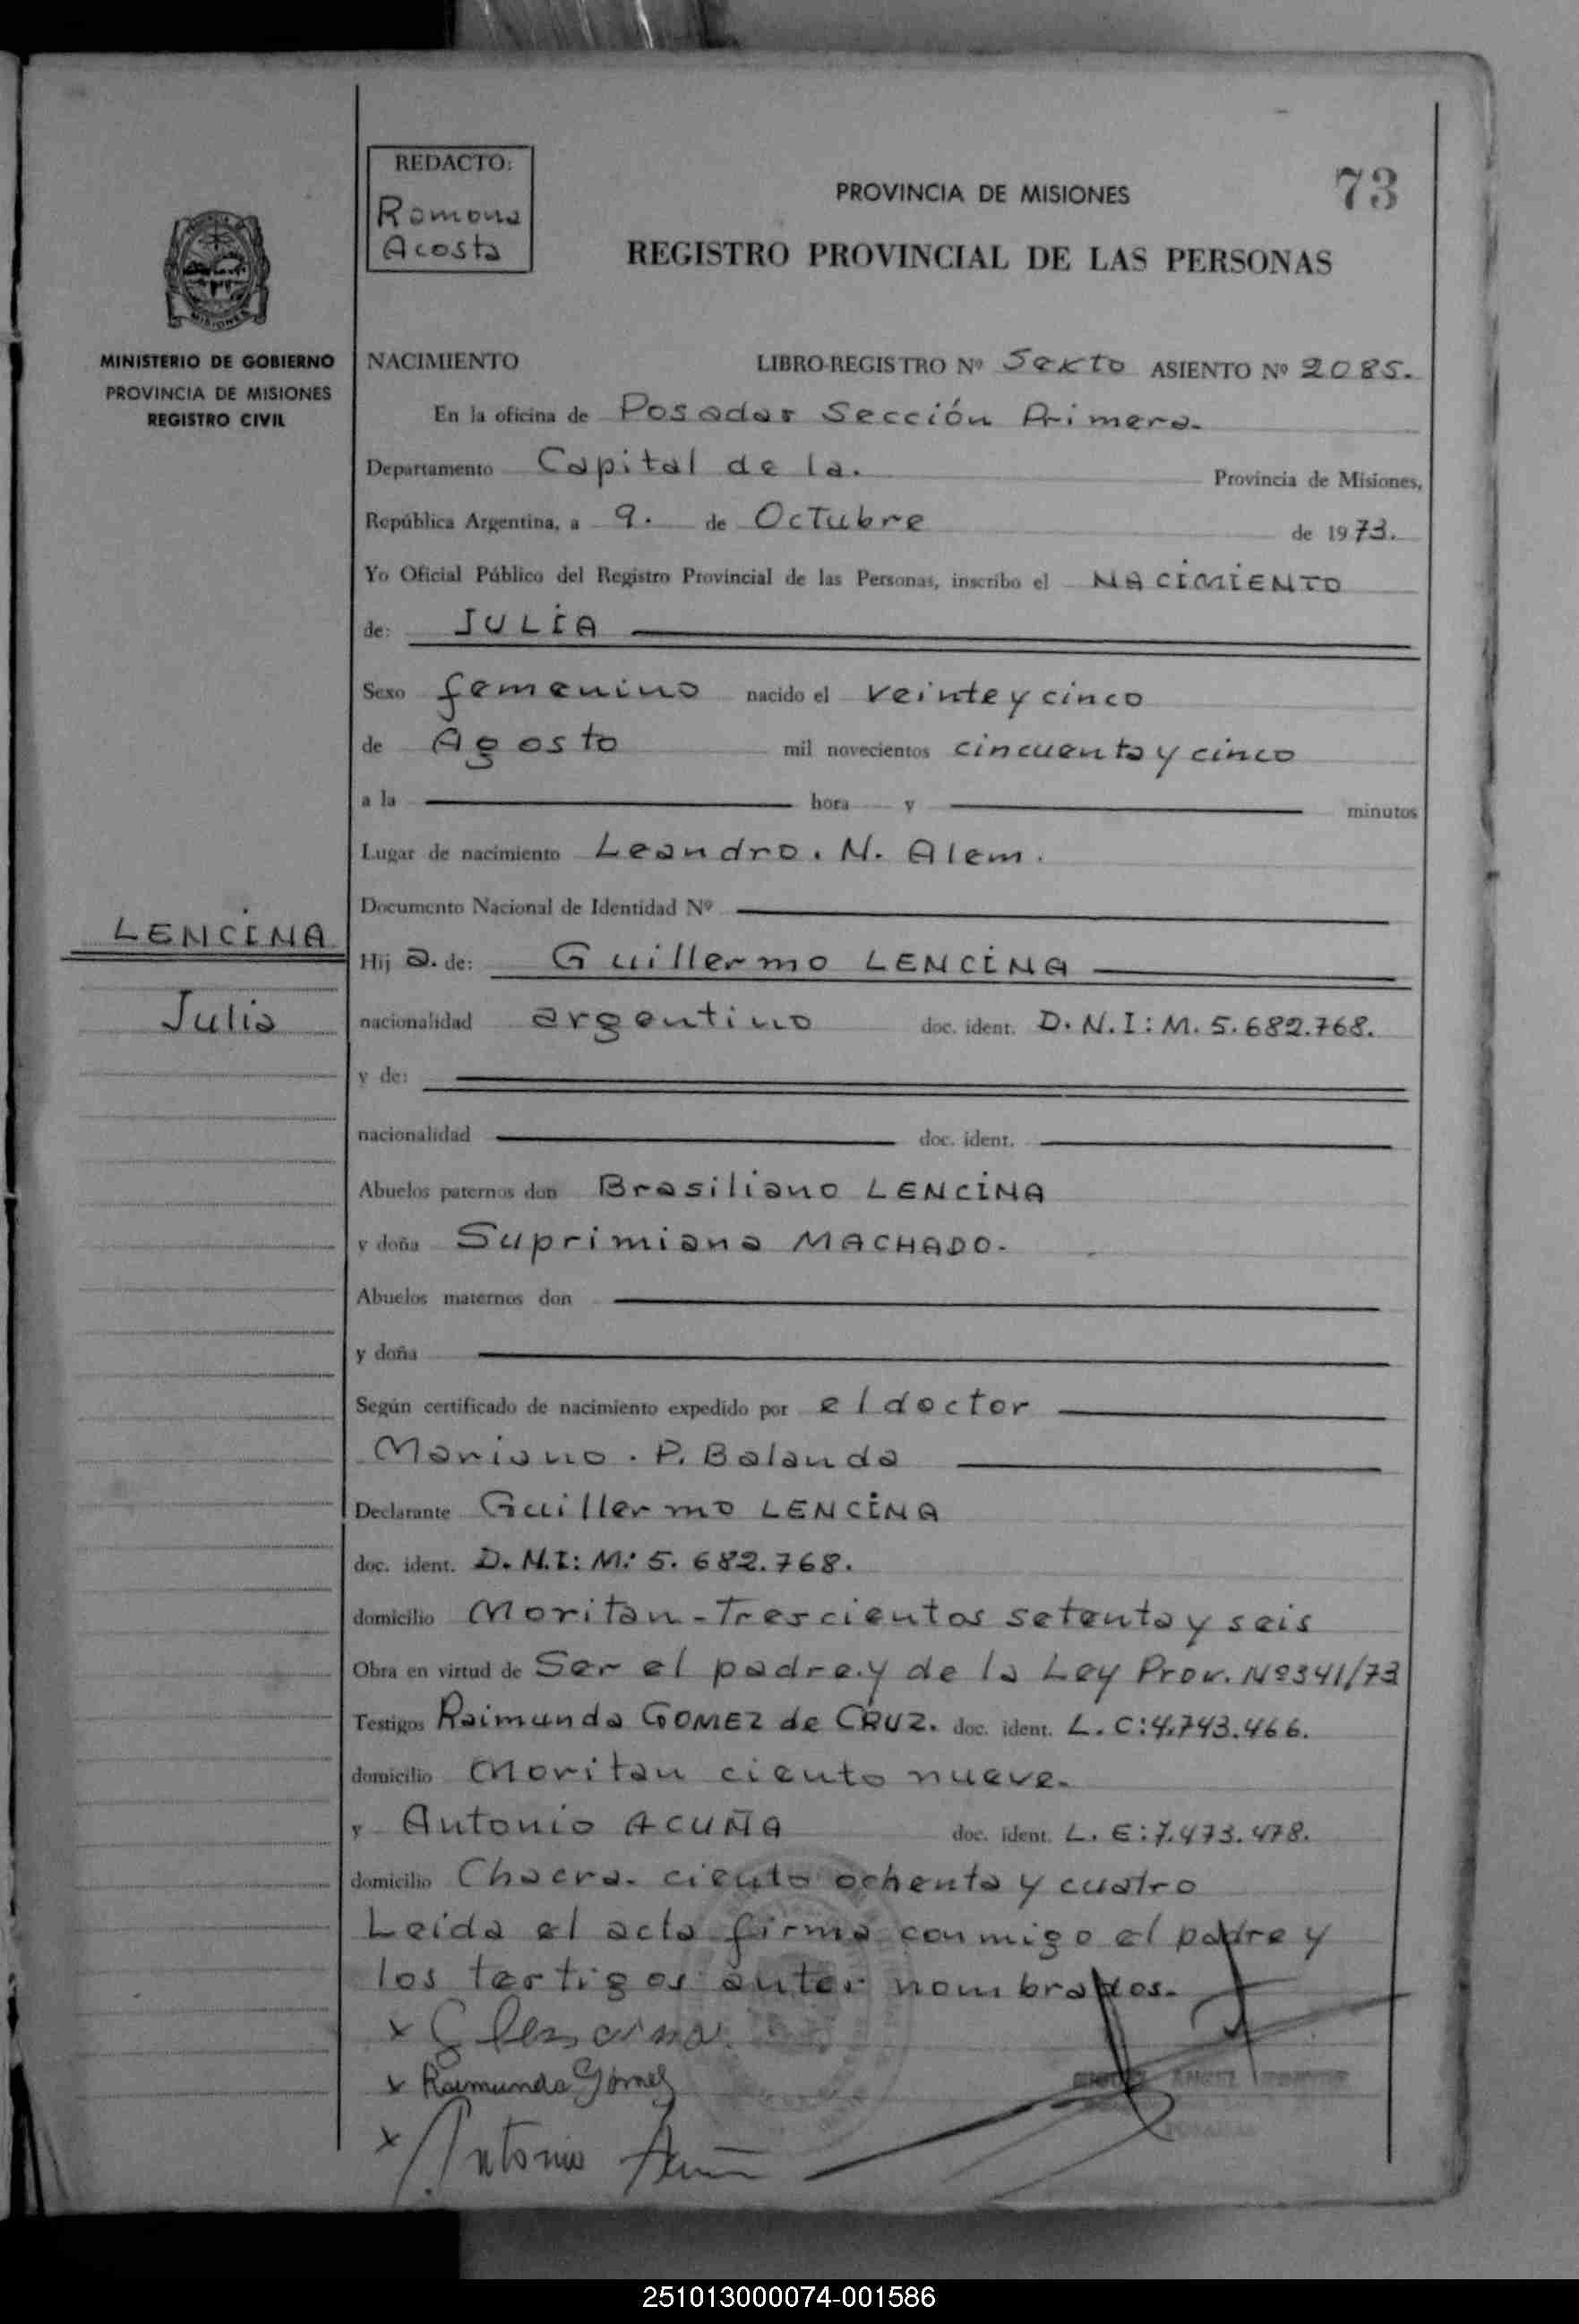 73
REDACTO:
Ramona
Acosta
PROVINCIA DE MISIONES
REGISTRO PROVINCIAL DE LAS PERSONAS
MISIONES
MINISTERIO DE GOBIERNO
PROVINCIA DE MISIONES
REGISTRO CIVIL
NACIMIENTO LIBRO-REGISTRO Nº Sexto ASIENTO Nº 2085.
En la oficina de Posadas Sección Primera.
Departamento Capital de la. Provincia de Misiones,
República Argentina, a 9. de Octubre de 1973.
Yo Oficial Público del Registro Provincial de las Personas, inscribo el NACIMIENTO
de: JULIA
Sexo femenino nacido el veinte y cinco
de Agosto mil novecientos cincuenta y cinco
a la hora y minutos
Lugar de nacimiento Leandro. N. Alem.
Documento Nacional de Identidad Nº
LENCINA
Julia
Hij a. de: Guillermo LENCINA
nacionalidad argentino doc. ident. D.N.I: M. 5.682.768.
y de:
nacionalidad doc. ident.
Abuelos paternos don Brasiliano LENCINA
y doña Suprimiana MACHADO.
Abuelos maternos don
y doña
Según certificado de nacimiento expedido por el doctor
Mariano. P. Balanda
Declarante Guillermo LENCINA
doc. ident. D.N.I: M: 5.682.768.
domicilio Moritan - Trescientos setenta y seis
Obra en virtud de Ser el padre.y de la Ley Prov. Nº341/73
Testigos Raimunda GOMEZ de CRUZ. doc. ident. L.C:4.743.466.
domicilio Moritan ciento nueve.
y Antonio ACUÑA doc. ident. L.E:7.473.478.
domicilio Chacra. ciento ochenta y cuatro
Leída el acta firma conmigo el padre y
los testigos antes nombrados.
x G Lencina
x Raimunda Gómez
x Antonio
ANGEL
251013000074-001586